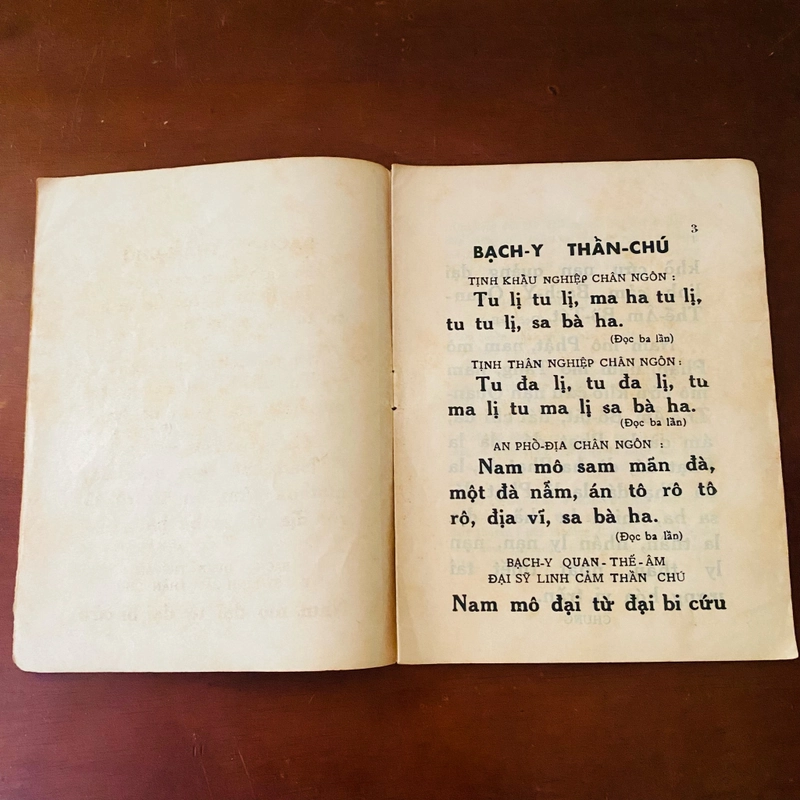 3
BẠCH-Y THẦN-CHÚ
TỊNH KHẨU NGHIỆP CHÂN NGÔN :
Tu lị tu lị, ma ha tu lị,
tu tu lị, sa bà ha.
(Đọc ba lần)
TỊNH THÂN NGHIỆP CHÂN NGÔN :
Tu đa lị, tu đa lị, tu
ma lị tu ma lị sa bà ha.
(Đọc ba lần)
AN PHỔ-ĐỊA CHÂN NGÔN :
Nam mô sam mãn đà,
một đà nẫm, án tô rô tô
rô, địa vĩ, sa bà ha.
(Đọc ba lần)
BẠCH-Y QUAN-THẾ-ÂM
ĐẠI SỸ LINH CẢM THẦN CHÚ
Nam mô đại từ đại bi cứu